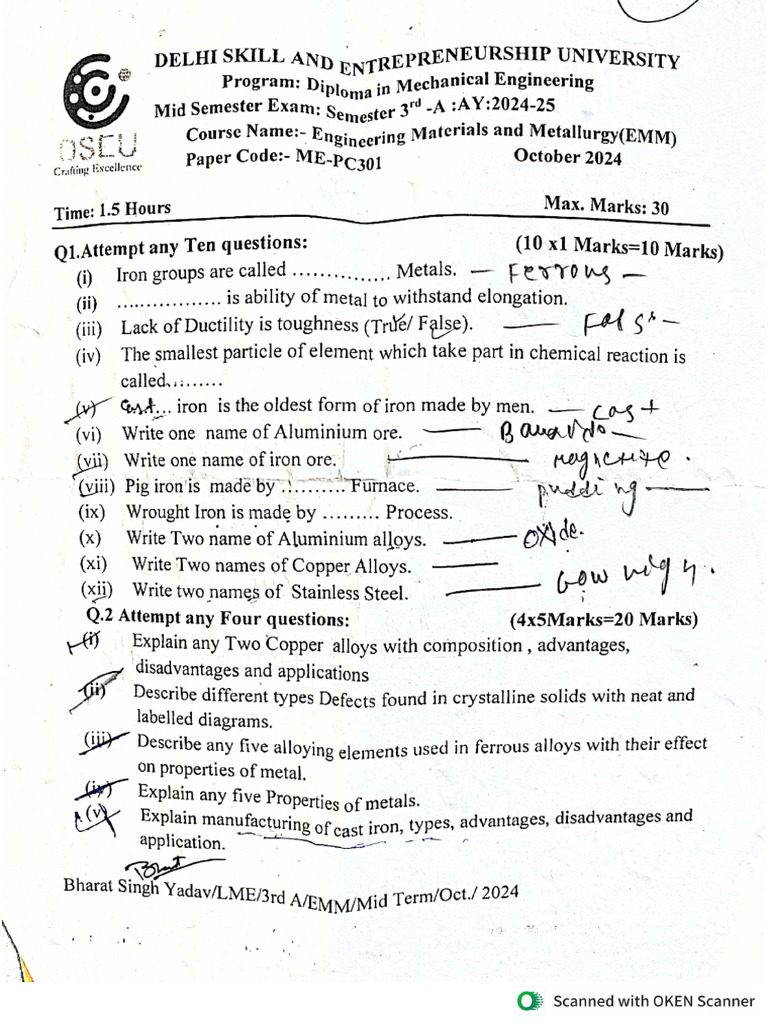 DELHI SKILL AND ENTREPRENEURSHIP UNIVERSITY
Program: Diploma in Mechanical Engineering
Mid Semester Exam: Semester 3rd -A :AY:2024-25
Course Name:- Engineering Materials and Metallurgy(EMM)
Paper Code:- ME-PC301 October 2024
DSEU
Crafting Excellence
Time: 1.5 Hours Max. Marks: 30
Q1.Attempt any Ten questions: (10 x1 Marks=10 Marks)
(i) Iron groups are called …………… Metals. — Ferrous —
(ii) …………… is ability of metal to withstand elongation.
(iii) Lack of Ductility is toughness (True/ False). — Fals —
(iv) The smallest particle of element which take part in chemical reaction is
called………
(v) Cast... iron is the oldest form of iron made by men. — cast
(vi) Write one name of Aluminium ore. —
(vii) Write one name of iron ore. —
(viii) Pig iron is made by ……… Furnace. — pudding —
(ix) Wrought Iron is made by ……… Process.
(x) Write Two name of Aluminium alloys. — oxide.
(xi) Write Two names of Copper Alloys. —
(xii) Write two names of Stainless Steel. —
Q.2 Attempt any Four questions: (4x5Marks=20 Marks)
(i) Explain any Two Copper alloys with composition , advantages,
disadvantages and applications
(ii) Describe different types Defects found in crystalline solids with neat and
labelled diagrams.
(iii) Describe any five alloying elements used in ferrous alloys with their effect
on properties of metal.
(iv) Explain any five Properties of metals.
(v) Explain manufacturing of cast iron, types, advantages, disadvantages and
application.
Bharat Singh Yadav/LME/3rd A/EMM/Mid Term/Oct./ 2024
Scanned with OKEN Scanner